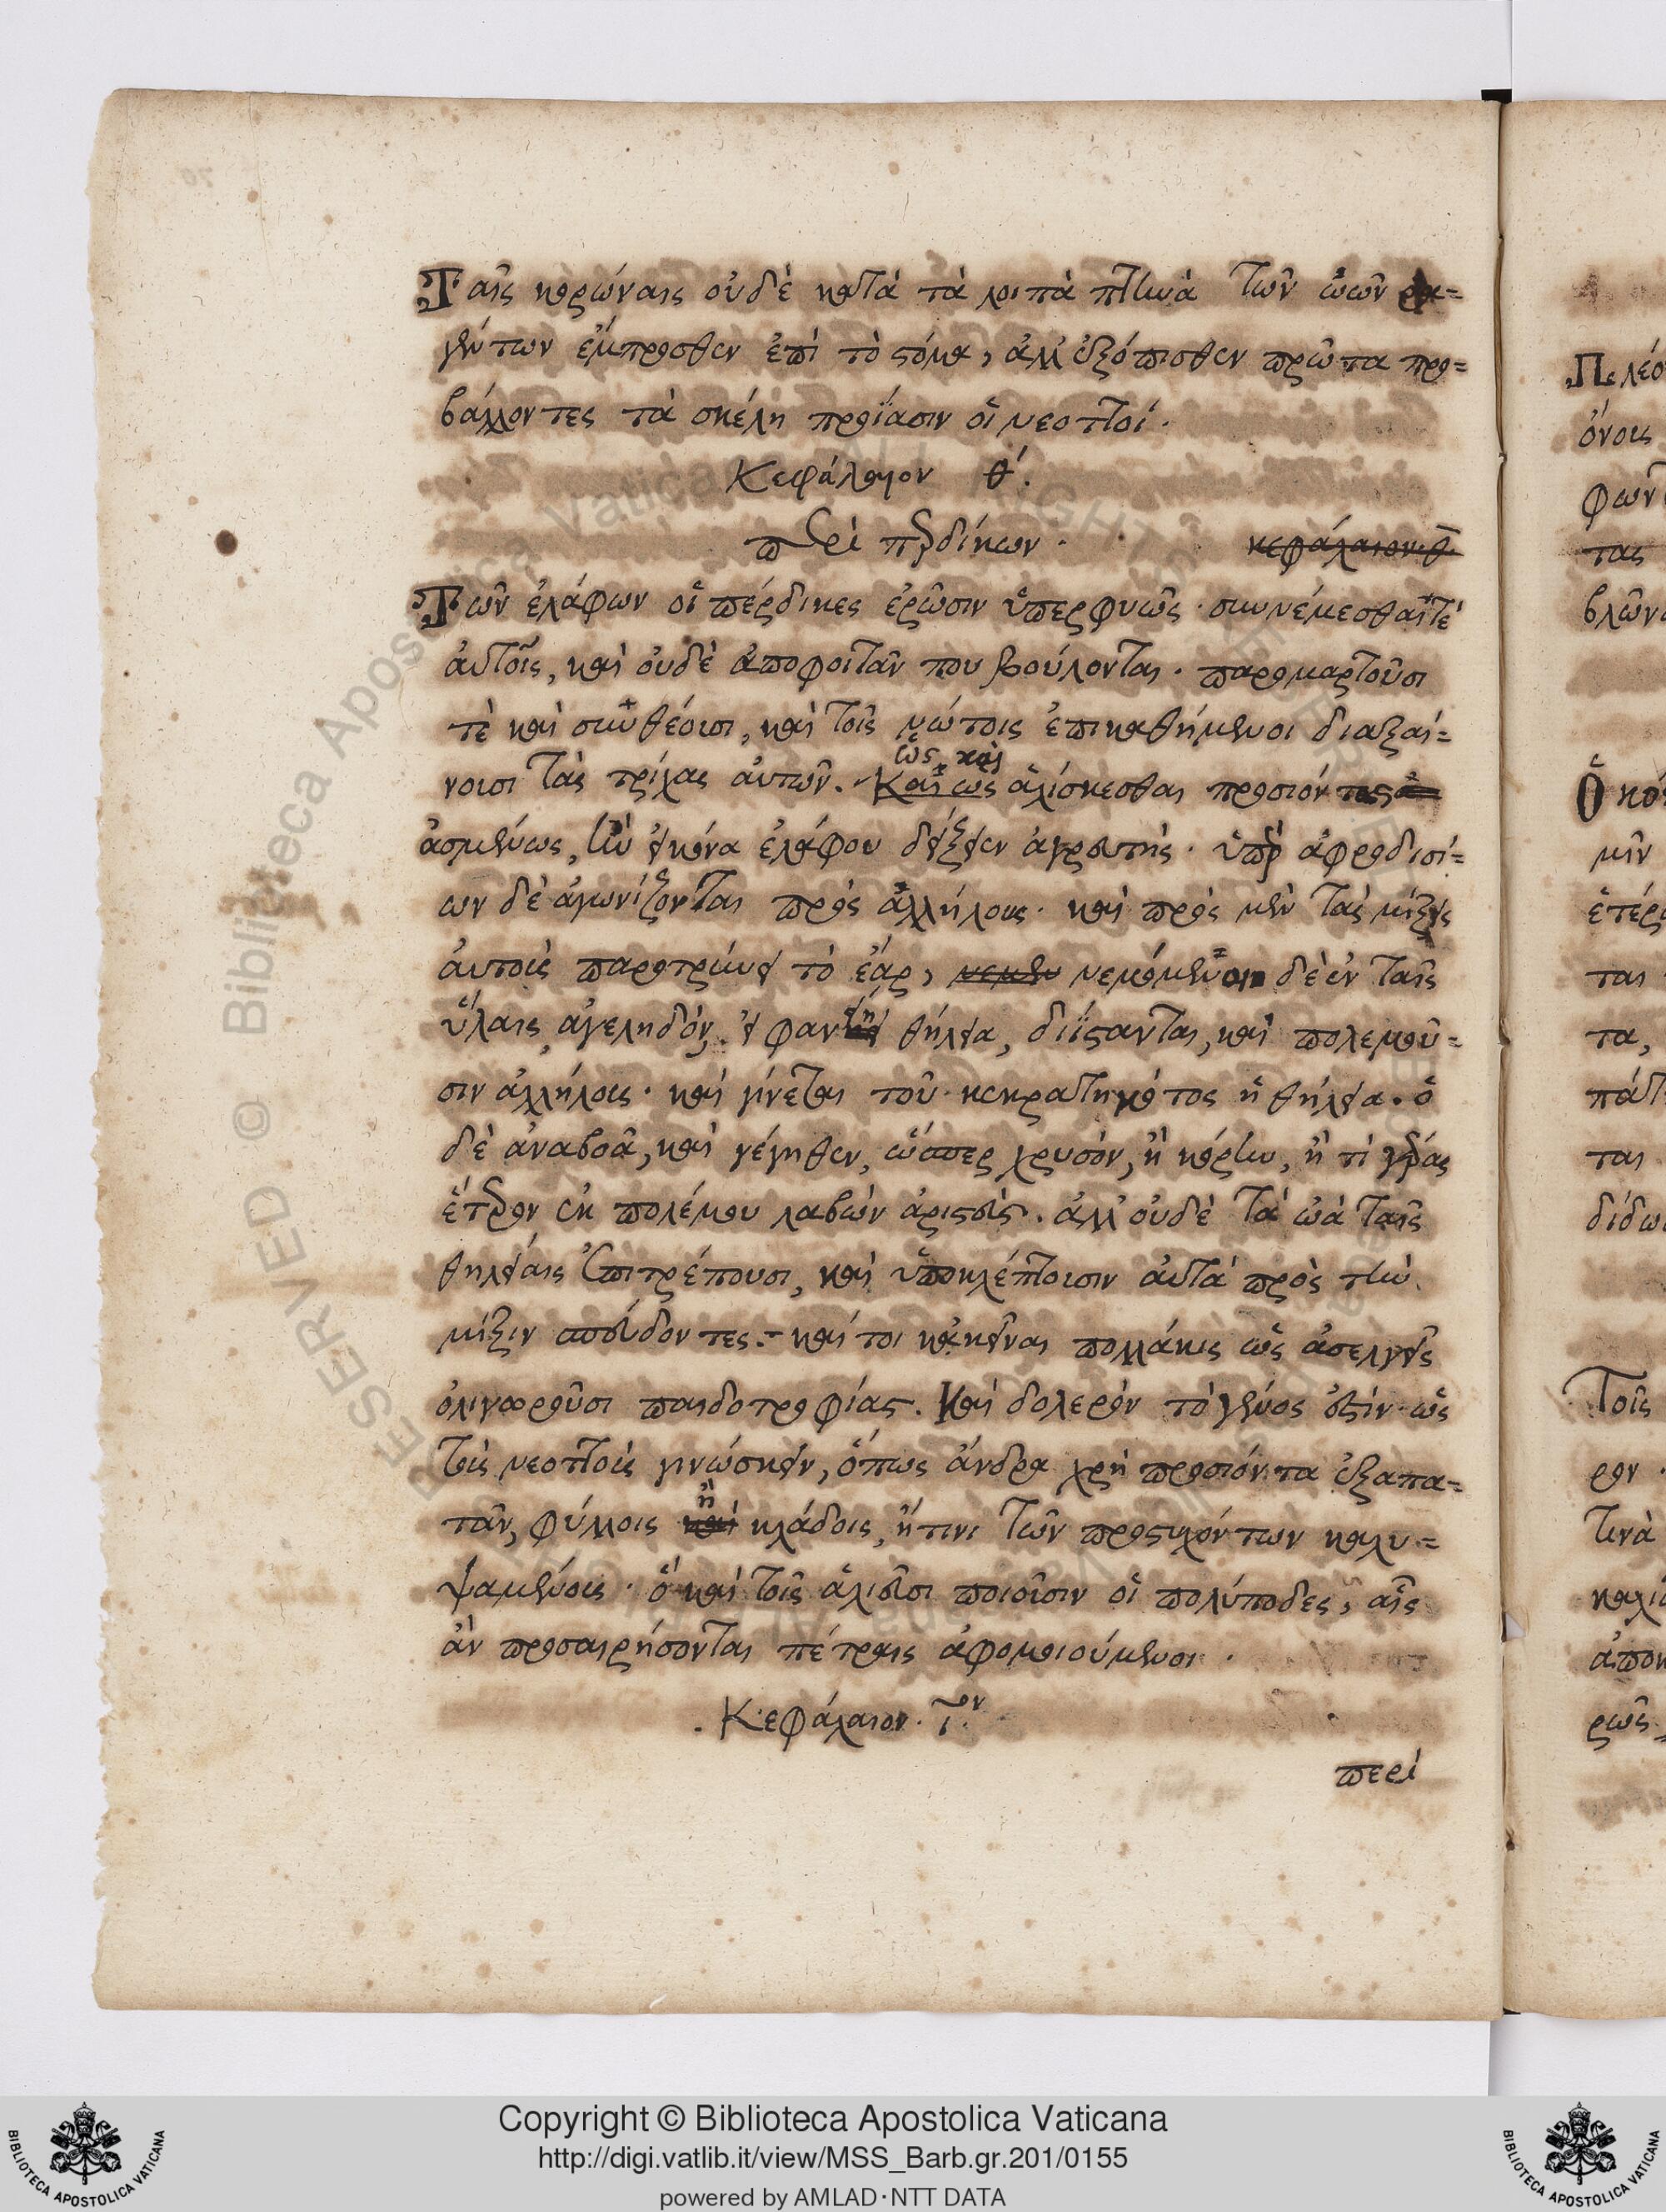 Ταῖς κορώναις οὐδὲ κατὰ τὰ λοιπὰ πτηνὰ τῶν ὠῶν ῥα=
γέντων ἔμπροσθεν ἐπὶ τὸ στόμα, ἀλλ' ἐξόπισθεν πρῶτα προ=
βάλλοντες τὰ σκέλη προΐασιν οἱ νεοττοί.
Κεφάλαιον θ΄.
περὶ περδίκων. κεφάλαιον. θ.
Τῶν ἐλάφων οἱ πέρδικες ἐρῶσιν ὑπερφυῶς. συννέμεσθαί τε
αὐτοῖς, καὶ οὐδὲ ἀποφοιτᾶν που βούλονται. παρομαρτοῦσι
τὲ καὶ συνθέουσι, καὶ τοῖς νώτοις ἐπικαθήμενοι διαξαί=
νουσι τὰς τρίχας αὐτῶν. Καὶ ὡς ὡς καὶ ἁλίσκεσθαι προσιόντας
ἀσμένως, ἢν εἰκόνα ἐλάφου δείξειεν ἀγρευτής. ὑπὲρ ἀφροδισί=
ων δὲ ἀγωνίζονται πρὸς ἀλλήλους. καὶ πρὸς μὲν τὰς μίξεις
αὐτοὺς παροτρύνει τὸ ἔαρ, νεμεν νεμόμενοι δὲ ἐν ταῖς
ὕλαις ἀγεληδόν, εἰ φανείη θήλεια, διΐστανται, καὶ πολεμοῦ=
σιν ἀλλήλοις. καὶ γίνεται τοῦ κεκρατηκότος ἡ θήλεια. ὁ
δὲ ἀναβοᾶ, καὶ γέγηθεν, ὥσπερ χρυσόν, ἢ κόρην, ἢ τὶ γέρας
ἕτερον ἐκ πολέμου λαβὼν ἀριστεύς. ἀλλ' οὐδὲ τὰ ὠὰ ταῖς
θηλείαις ἐπιτρέπουσι, καὶ ὑποκλέπτουσιν αὐτὰ πρὸς τὴν
μίξιν σπεύδοντες. καί τοι κἀκεῖναι πολλάκις ὡς ἀσελγεῖς
ὀλιγωροῦσι παιδοτροφίας. Καὶ δολερὸν τὸ γένος ἐστὶν ὡς
τοὺς νεοττοὺς γινώσκειν, ὅπως ἄνδρα χρὴ προσιόντα ἐξαπα=
τᾶν, φύλλοις καὶ ἢ κλάδοις, ἤ τινι τῶν προστυχόντων καλυ=
ψαμένους. ὃ καὶ τοῖς ἁλιεῦσι ποιοῦσιν οἱ πολύποδες, αἷς
ἂν προσαιρήσονται πέτραις ἀφομοιούμενοι.
Κεφάλαιον. Ιον
περὶ
Copyright © Biblioteca Apostolica Vaticana
http://digi.vatlib.it/view/MSS_Barb.gr.201/0155
powered by AMLAD·NTT DATA